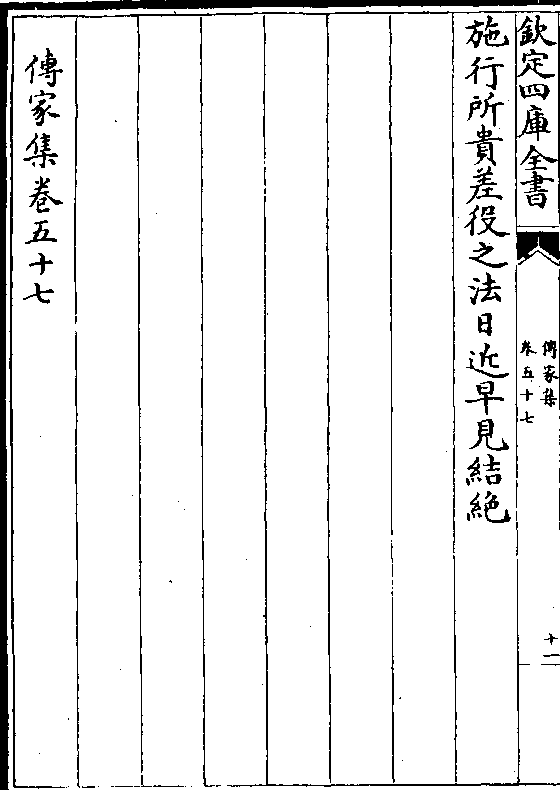 欽定四庫全書
傳家集
卷五十七
十一
施行所貴差役之法日近早見結絶
傳家集卷五十七